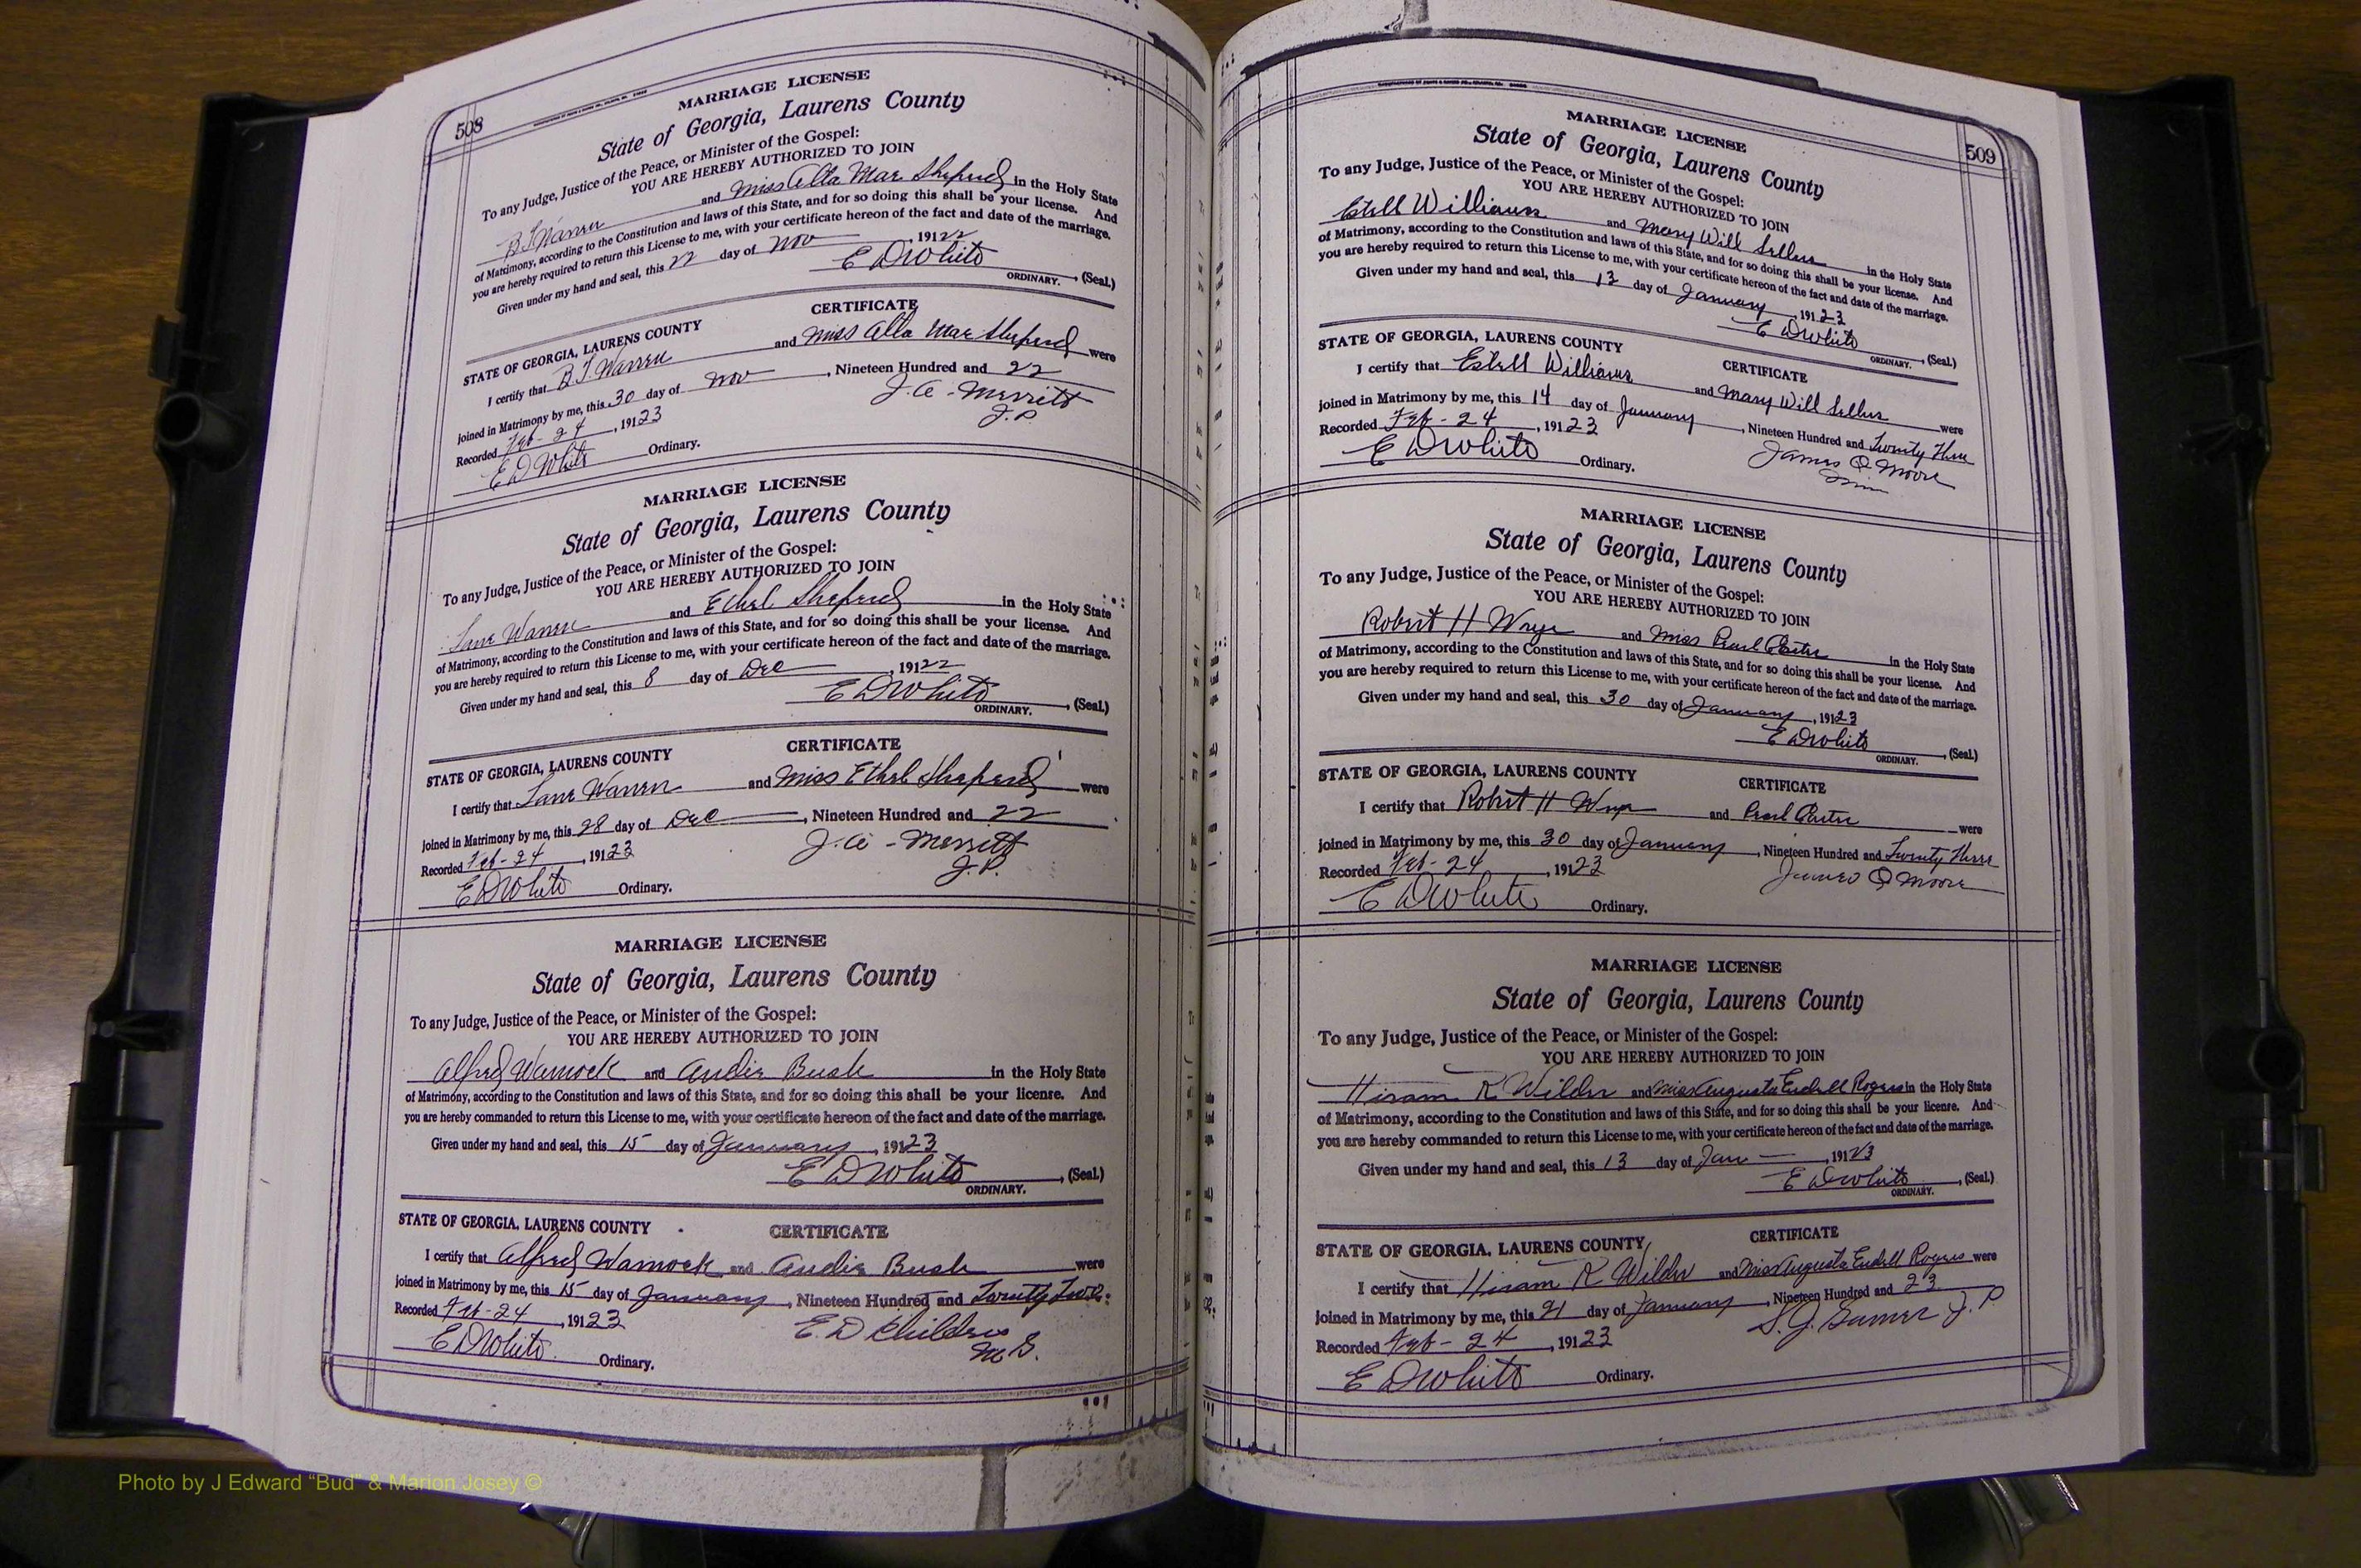 508
MARRIAGE LICENSE
State of Georgia, Laurens County
To any Judge, Justice of the Peace, or Minister of the Gospel:
YOU ARE HEREBY AUTHORIZED TO JOIN
B T Warren and Miss Alla Mae Sheperd in the Holy State
of Matrimony, according to the Constitution and laws of this State, and for so doing this shall be your license. And
you are hereby required to return this License to me, with your certificate hereon of the fact and date of the marriage.
Given under my hand and seal, this 22 day of Nov , 19122
E D White (Seal.)
ORDINARY.
CERTIFICATE
STATE OF GEORGIA, LAURENS COUNTY
I certify that B T Warren and Miss Alla Mae Sheperd were
joined in Matrimony by me, this 30 day of Nov , Nineteen Hundred and 22
Recorded Feb - 24 , 19123
J. A - Merritt
J. P.
E D White Ordinary.
MARRIAGE LICENSE
State of Georgia, Laurens County
To any Judge, Justice of the Peace, or Minister of the Gospel:
YOU ARE HEREBY AUTHORIZED TO JOIN
Lane Warren and Ethel Sheperd in the Holy State
of Matrimony, according to the Constitution and laws of this State, and for so doing this shall be your license. And
you are hereby required to return this License to me, with your certificate hereon of the fact and date of the marriage.
Given under my hand and seal, this 8 day of Dec , 19122
E D White , (Seal.)
ORDINARY.
CERTIFICATE
STATE OF GEORGIA, LAURENS COUNTY
I certify that Lane Warren and Miss Ethel Sheperd were
joined in Matrimony by me, this 28 day of Dec , Nineteen Hundred and 22
Recorded Feb - 24 , 19123
J. A - Merritt
J. P.
E D White Ordinary.
MARRIAGE LICENSE
State of Georgia, Laurens County
To any Judge, Justice of the Peace, or Minister of the Gospel:
YOU ARE HEREBY AUTHORIZED TO JOIN
Alfred Warnock and Audie Bush in the Holy State
of Matrimony, according to the Constitution and laws of this State, and for so doing this shall be your license. And
you are hereby commanded to return this License to me, with your certificate hereon of the fact and date of the marriage.
Given under my hand and seal, this 15 day of January , 19123
E D White , (Seal.)
ORDINARY.
STATE OF GEORGIA, LAURENS COUNTY CERTIFICATE
I certify that Alfred Warnock and Audie Bush were
joined in Matrimony by me, this 15 day of January , Nineteen Hundred and Twenty
Recorded Feb - 24 , 19123
E. D Childres
M. G.
E D White Ordinary.
509
MARRIAGE LICENSE
State of Georgia, Laurens County
To any Judge, Justice of the Peace, or Minister of the Gospel:
YOU ARE HEREBY AUTHORIZED TO JOIN
Estell Williams and Mary Will Sellers in the Holy State
of Matrimony, according to the Constitution and laws of this State, and for so doing this shall be your license. And
you are hereby required to return this License to me, with your certificate hereon of the fact and date of the marriage.
Given under my hand and seal, this 13 day of January , 19123
E D White , (Seal.)
ORDINARY.
STATE OF GEORGIA, LAURENS COUNTY CERTIFICATE
I certify that Estell Williams and Mary Will Sellers were
joined in Matrimony by me, this 14 day of January , Nineteen Hundred and Twenty Three
Recorded Feb - 24 , 19123
James O Moore
Min
E D White Ordinary.
MARRIAGE LICENSE
State of Georgia, Laurens County
To any Judge, Justice of the Peace, or Minister of the Gospel:
YOU ARE HEREBY AUTHORIZED TO JOIN
Robert H Wrye and Miss Pearl in the Holy State
of Matrimony, according to the Constitution and laws of this State, and for so doing this shall be your license. And
you are hereby required to return this License to me, with your certificate hereon of the fact and date of the marriage.
Given under my hand and seal, this 30 day of January , 19123
E D White , (Seal.)
ORDINARY.
STATE OF GEORGIA, LAURENS COUNTY CERTIFICATE
I certify that Robert H Wrye and Pearl were
joined in Matrimony by me, this 30 day of January , Nineteen Hundred and Twenty Three
Recorded Feb - 24 , 19123
James O Moore
E D White Ordinary.
MARRIAGE LICENSE
State of Georgia, Laurens County
To any Judge, Justice of the Peace, or Minister of the Gospel:
YOU ARE HEREBY AUTHORIZED TO JOIN
Hiram R Wilder and Miss Augusta Eudell Rogers in the Holy State
of Matrimony, according to the Constitution and laws of this State, and for so doing this shall be your license. And
you are hereby commanded to return this License to me, with your certificate hereon of the fact and date of the marriage.
Given under my hand and seal, this 13 day of Jan , 19123
E D White , (Seal.)
ORDINARY.
STATE OF GEORGIA, LAURENS COUNTY CERTIFICATE
I certify that Hiram R Wilder and Miss Augusta Eudell Rogers were
joined in Matrimony by me, this 21 day of January , Nineteen Hundred and 23
Recorded Feb - 24 , 19123
J. P.
E D White Ordinary.
Photo by J Edward “Bud” & Marion Josey ©